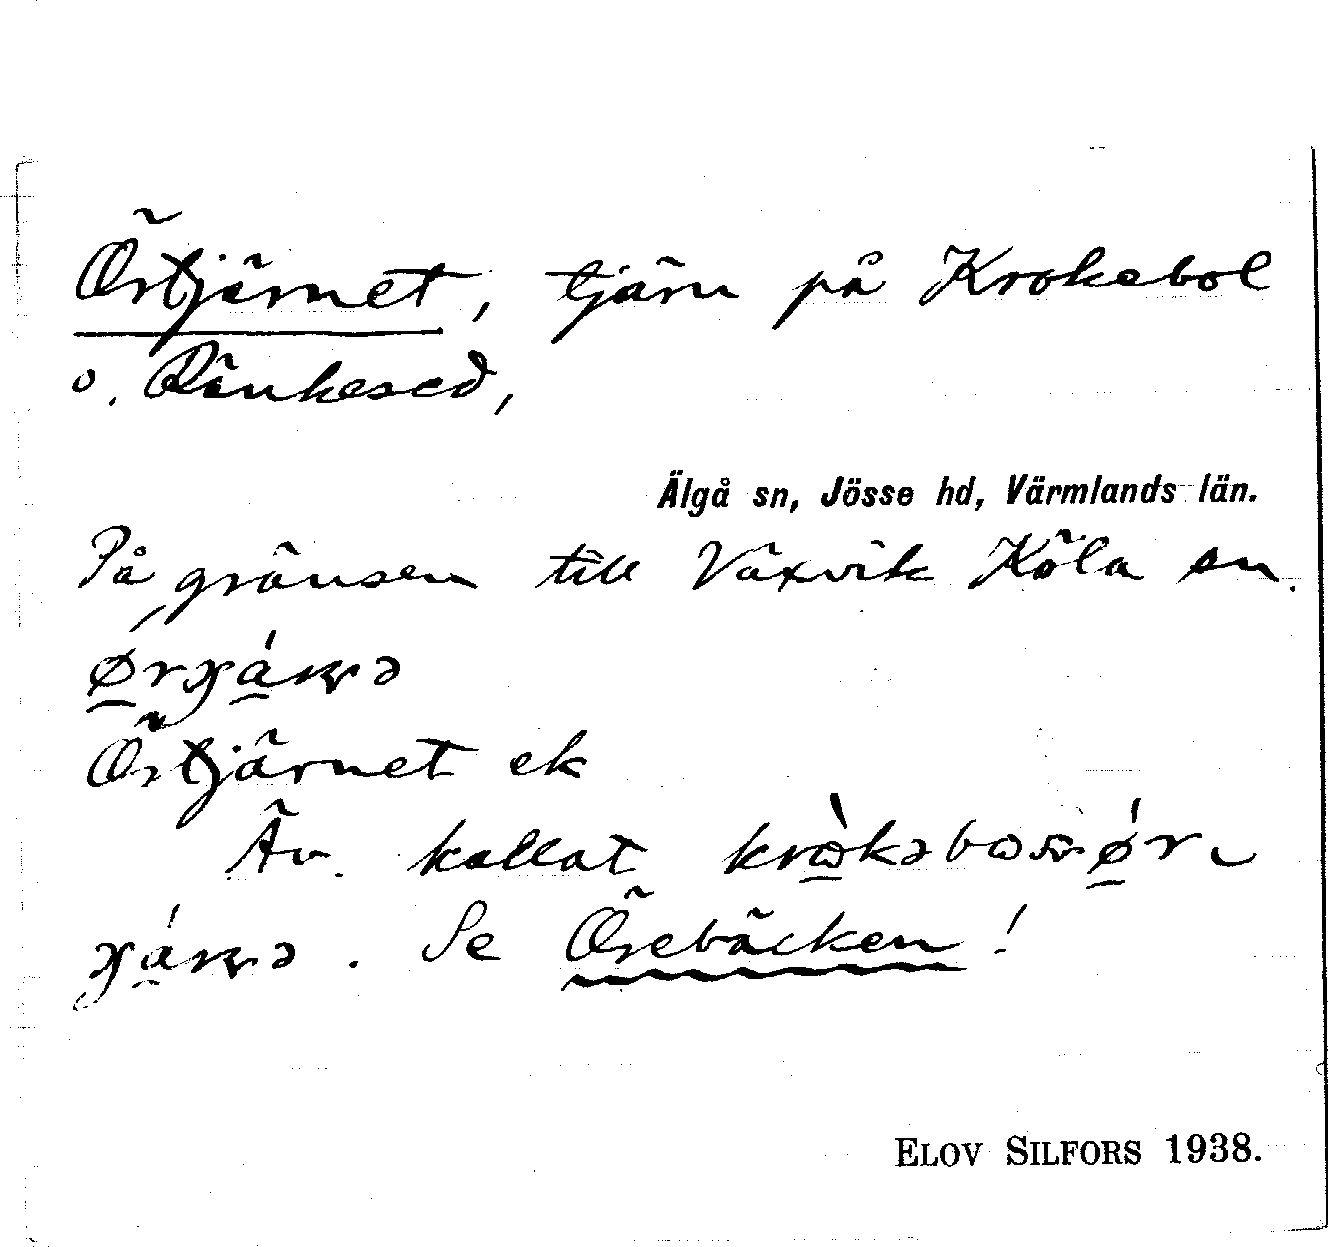 Örtjärnet, tjärn på Krokebol
o. Ränkesed,
Älgå sn, Jösse hd, Värmlands län.
På gränsen till Växvik Köla sn.
Örtjärnet ek
Äv. kallat
. Se Örebäcken!
ELOV SILFORS 1938.